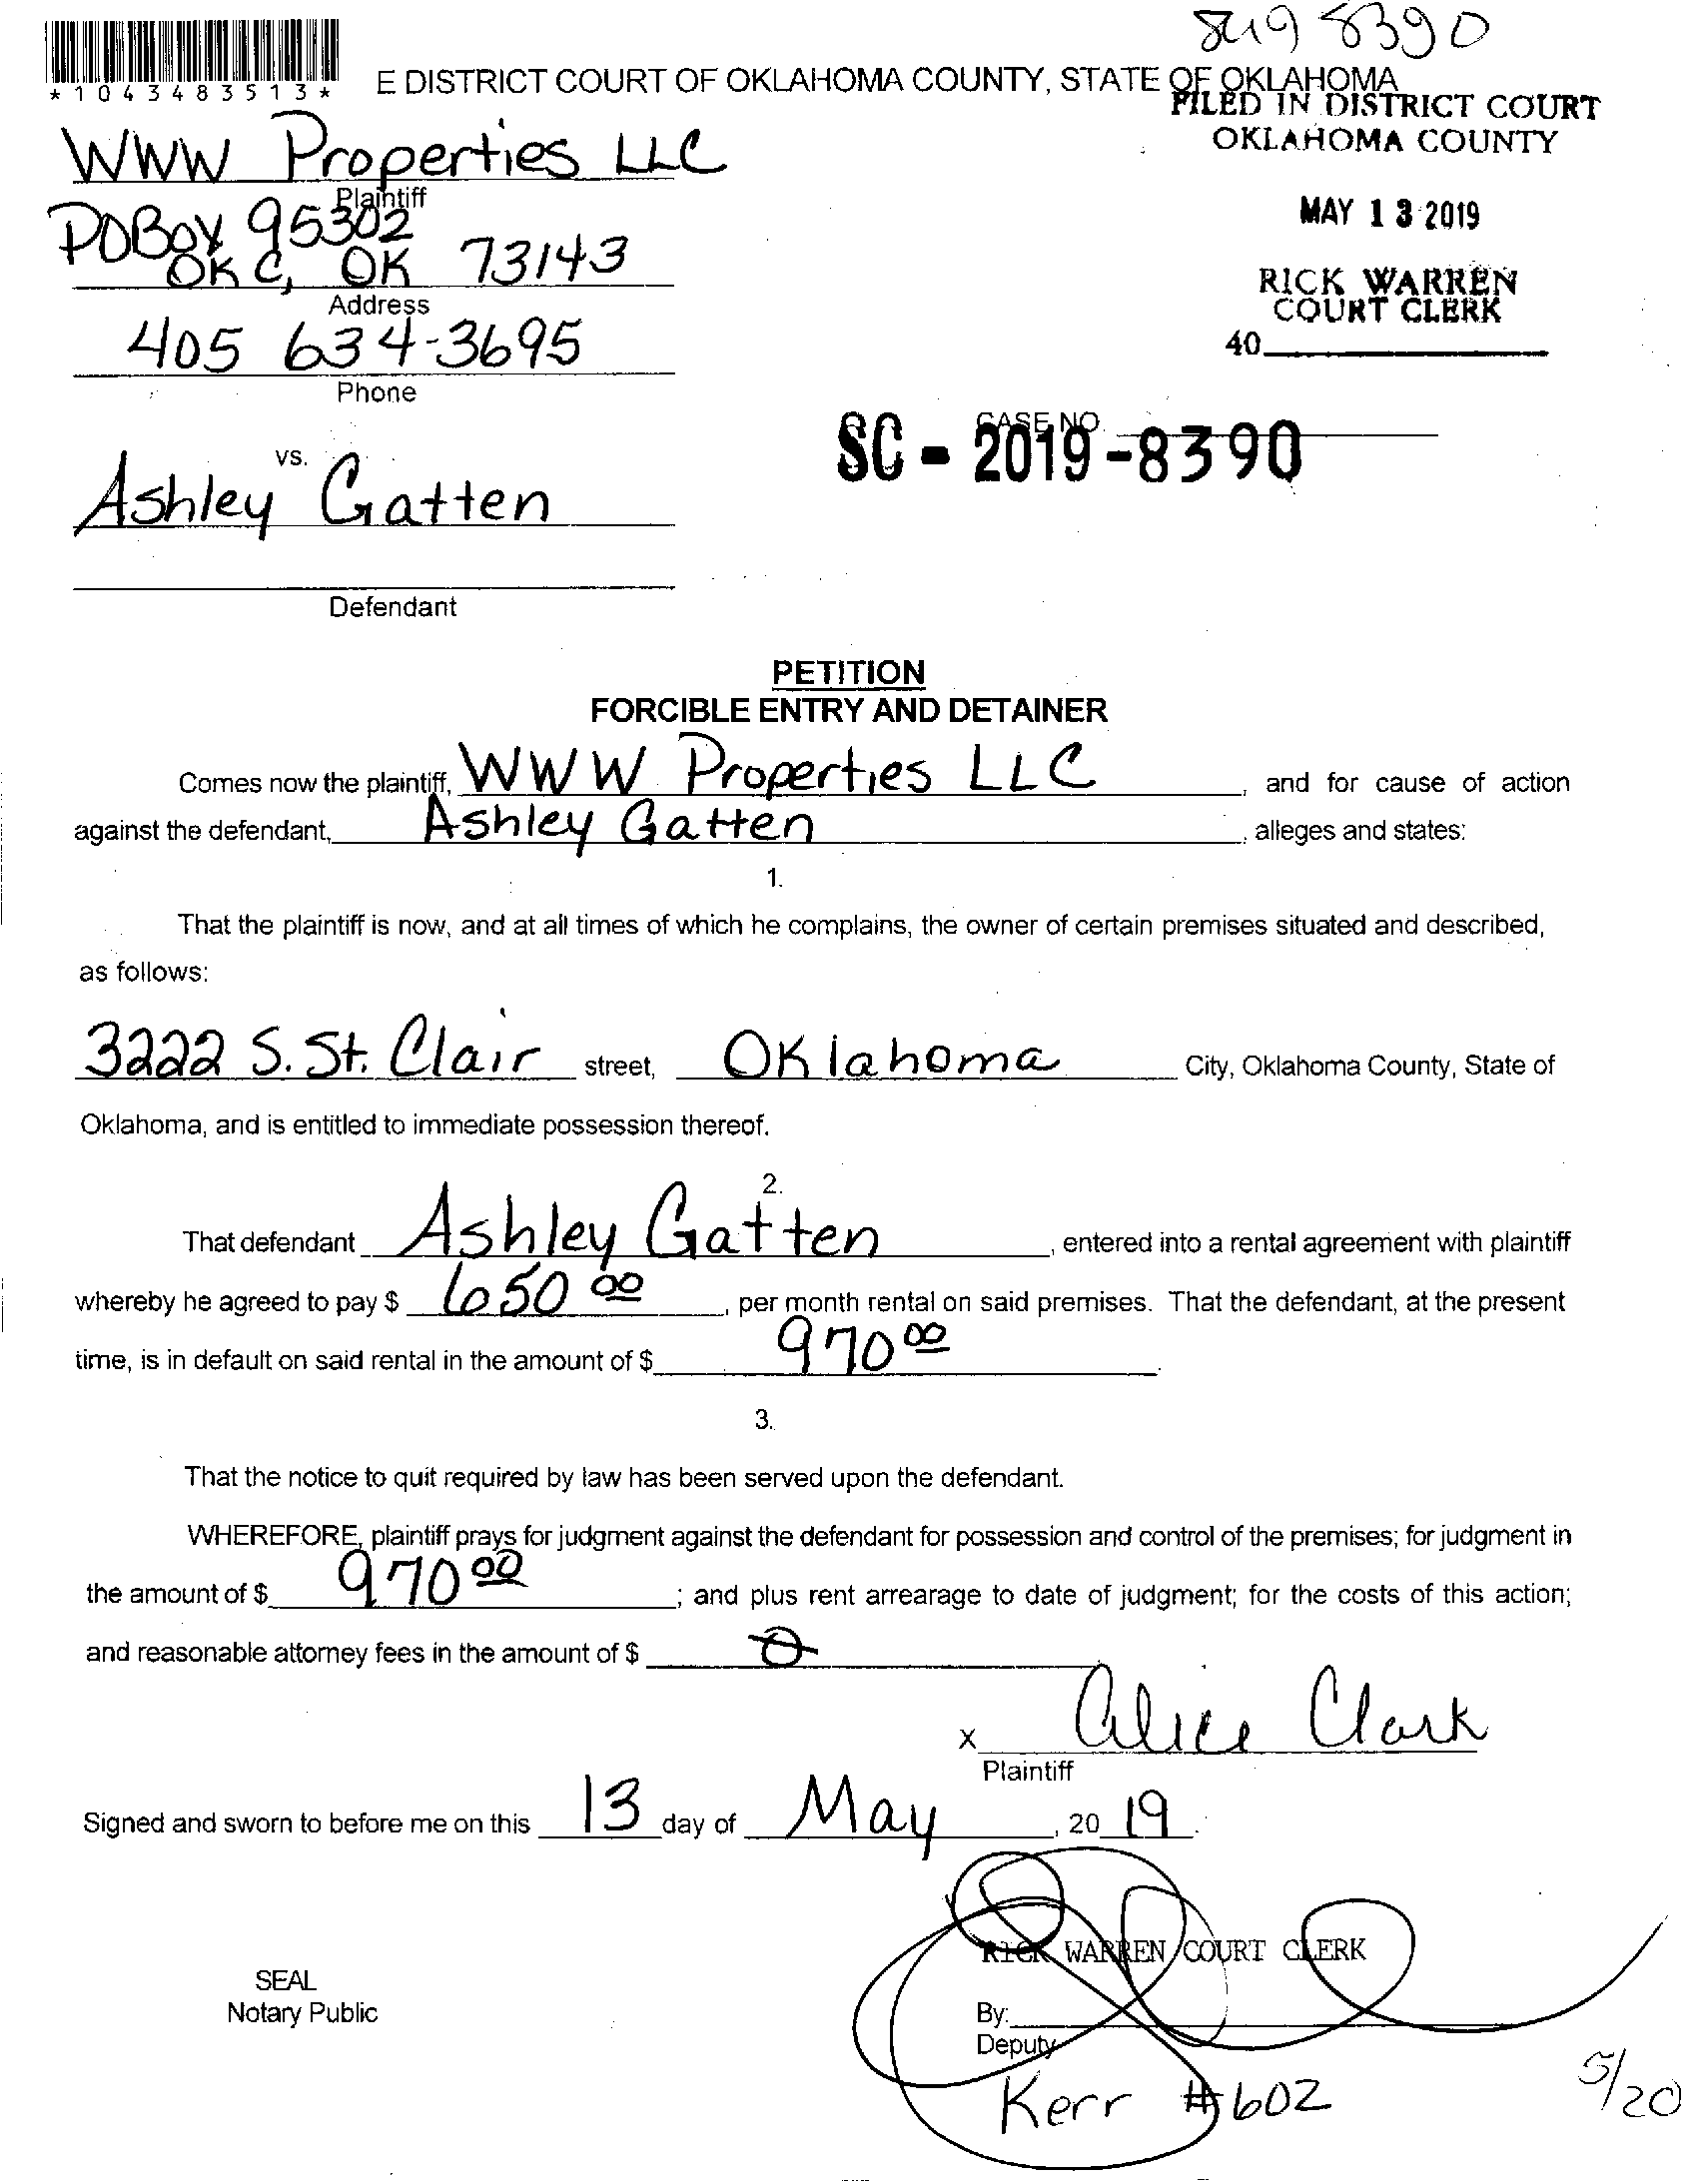 8419 8390
*1043483513*
E DISTRICT COURT OF OKLAHOMA COUNTY, STATE OF OKLAHOMA
FILED IN DISTRICT COURT
OKLAHOMA COUNTY
WWW Properties LLC
Plaintiff
MAY 13 2019
POBox 95302
OKC, OK 73143
Address
RICK WARREN
COURT CLERK
40
405 634-3695
Phone
CASE NO.
SC - 2019 - 8390
vs.
Ashley Gatten
Defendant
PETITION
FORCIBLE ENTRY AND DETAINER
Comes now the plaintiff, WWW Properties LLC, and for cause of action
against the defendant, Ashley Gatten, alleges and states:
1.
That the plaintiff is now, and at all times of which he complains, the owner of certain premises situated and described,
as follows:
3222 S. St. Clair street, Oklahoma City, Oklahoma County, State of
Oklahoma, and is entitled to immediate possession thereof.
2.
That defendant Ashley Gatten, entered into a rental agreement with plaintiff
whereby he agreed to pay $ 650 00, per month rental on said premises. That the defendant, at the present
time, is in default on said rental in the amount of $ 970 00.
3.
That the notice to quit required by law has been served upon the defendant.
WHEREFORE, plaintiff prays for judgment against the defendant for possession and control of the premises; for judgment in
the amount of $ 970 00; and plus rent arrearage to date of judgment; for the costs of this action;
and reasonable attorney fees in the amount of $ 0
x Alice Clark
Plaintiff
Signed and sworn to before me on this 13 day of May, 20 19.
RICK WARREN COURT CLERK
SEAL
Notary Public
By:
Deputy
Kerr #602
5/20